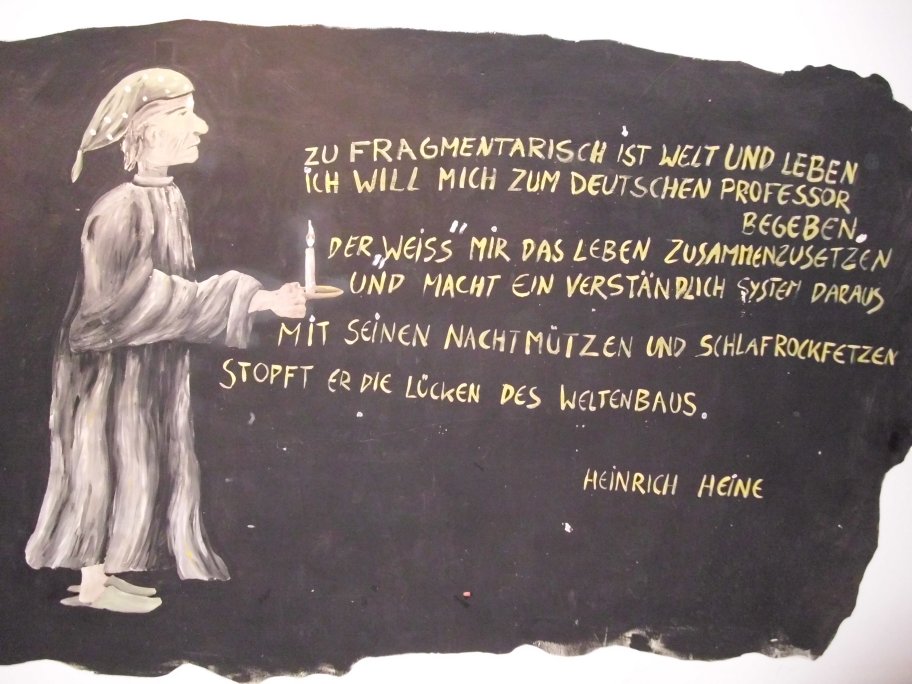 ZU FRAGMENTARISCH IST WELT UND LEBEN
ICH WILL MICH ZUM DEUTSCHEN PROFESSOR
BEGEBEN.
DER "WEISS" MIR DAS LEBEN ZUSAMMENZUSETZEN
UND MACHT EIN VERSTÄNDLICH SYSTEM DARAUS
MIT SEINEN NACHTMÜTZEN UND SCHLAFROCKFETZEN
STOPFT ER DIE LÜCKEN DES WELTENBAUS.
HEINRICH HEINE